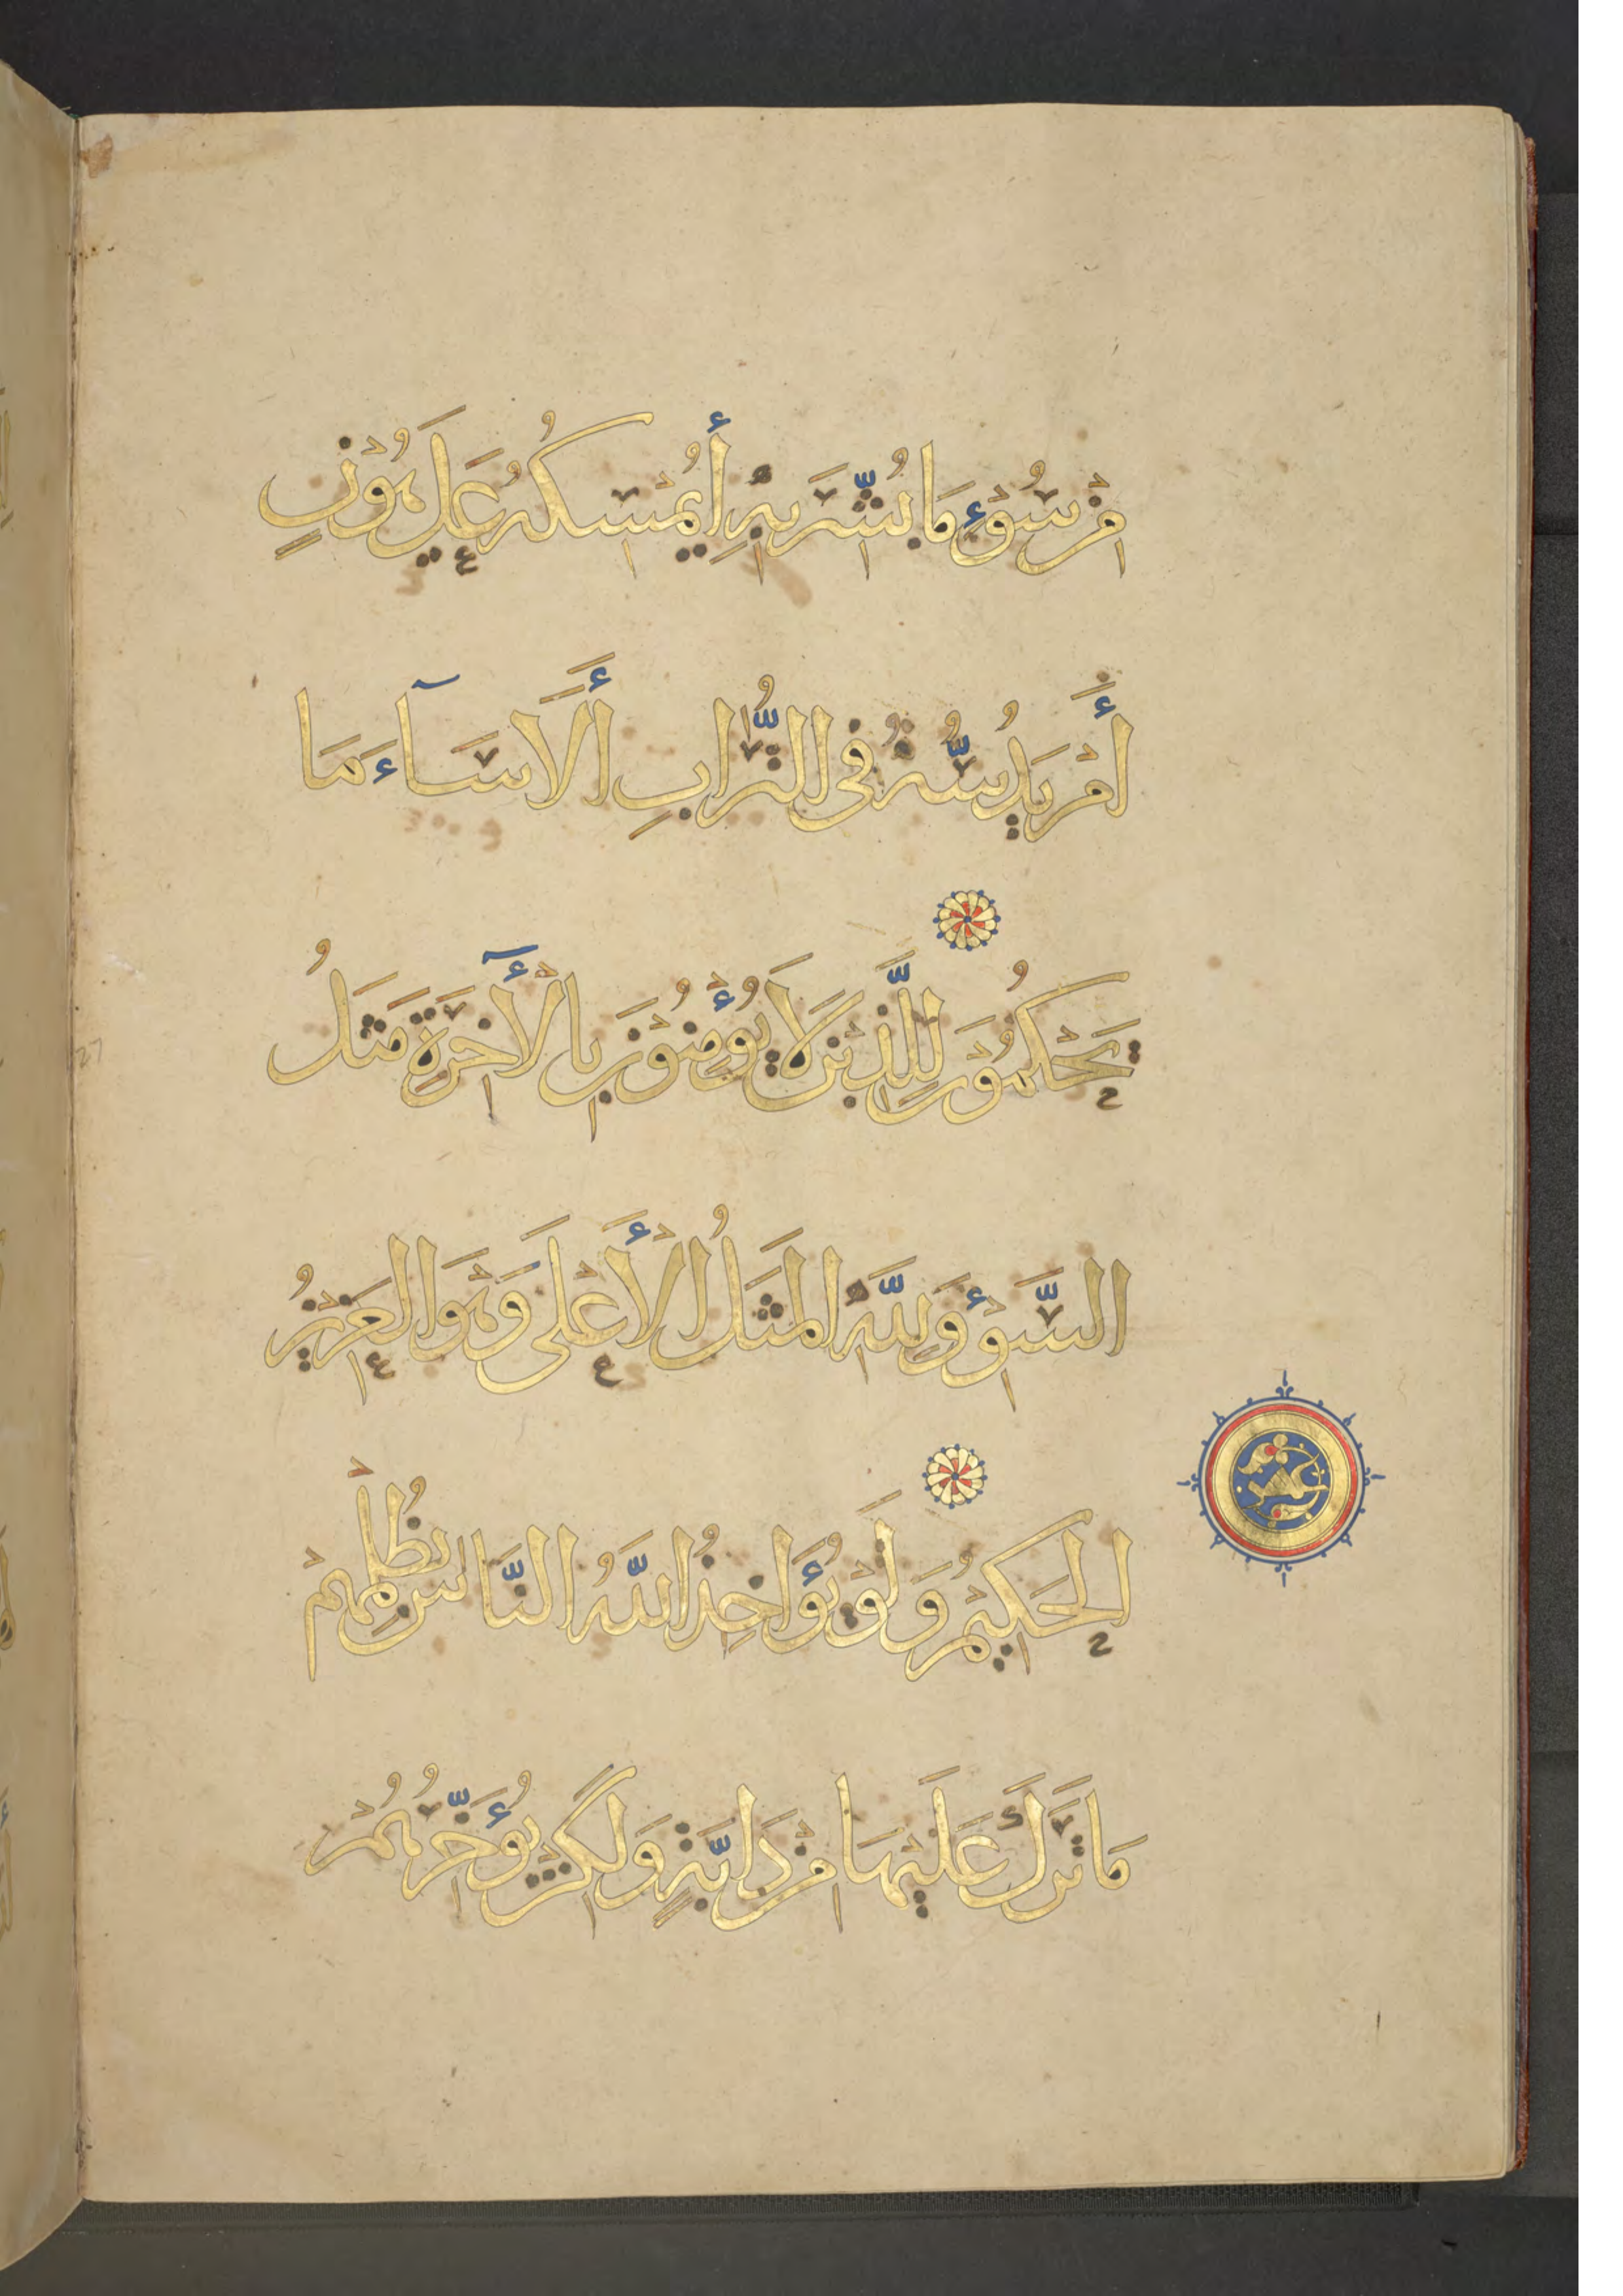 مِنْ سُوْءِ مَا بُشِّرَ بِهِ أَيُمْسِكُهُ عَلَى هُوْنٍ
أَمْ يَدُسُّهُ فِى التُّرَابِ أَلَا سَآءَ مَا
يَحْكُمُوْنَ لِلَّذِيْنَ لَا يُؤْمِنُوْنَ بِالْآخِرَةِ مَثَلُ
السَّوْءِ وَلِلَّهِ الْمَثَلُ الْأَعْلَى وَهُوَ الْعَزِيْزُ
الْحَكِيْمُ وَلَوْ يُؤَاخِذُ اللَّهُ النَّاسَ بِظُلْمِهِمْ
مَا تَرَكَ عَلَيْهَا مِنْ دَابَّةٍ وَلَكِنْ يُؤَخِّرُهُمْ